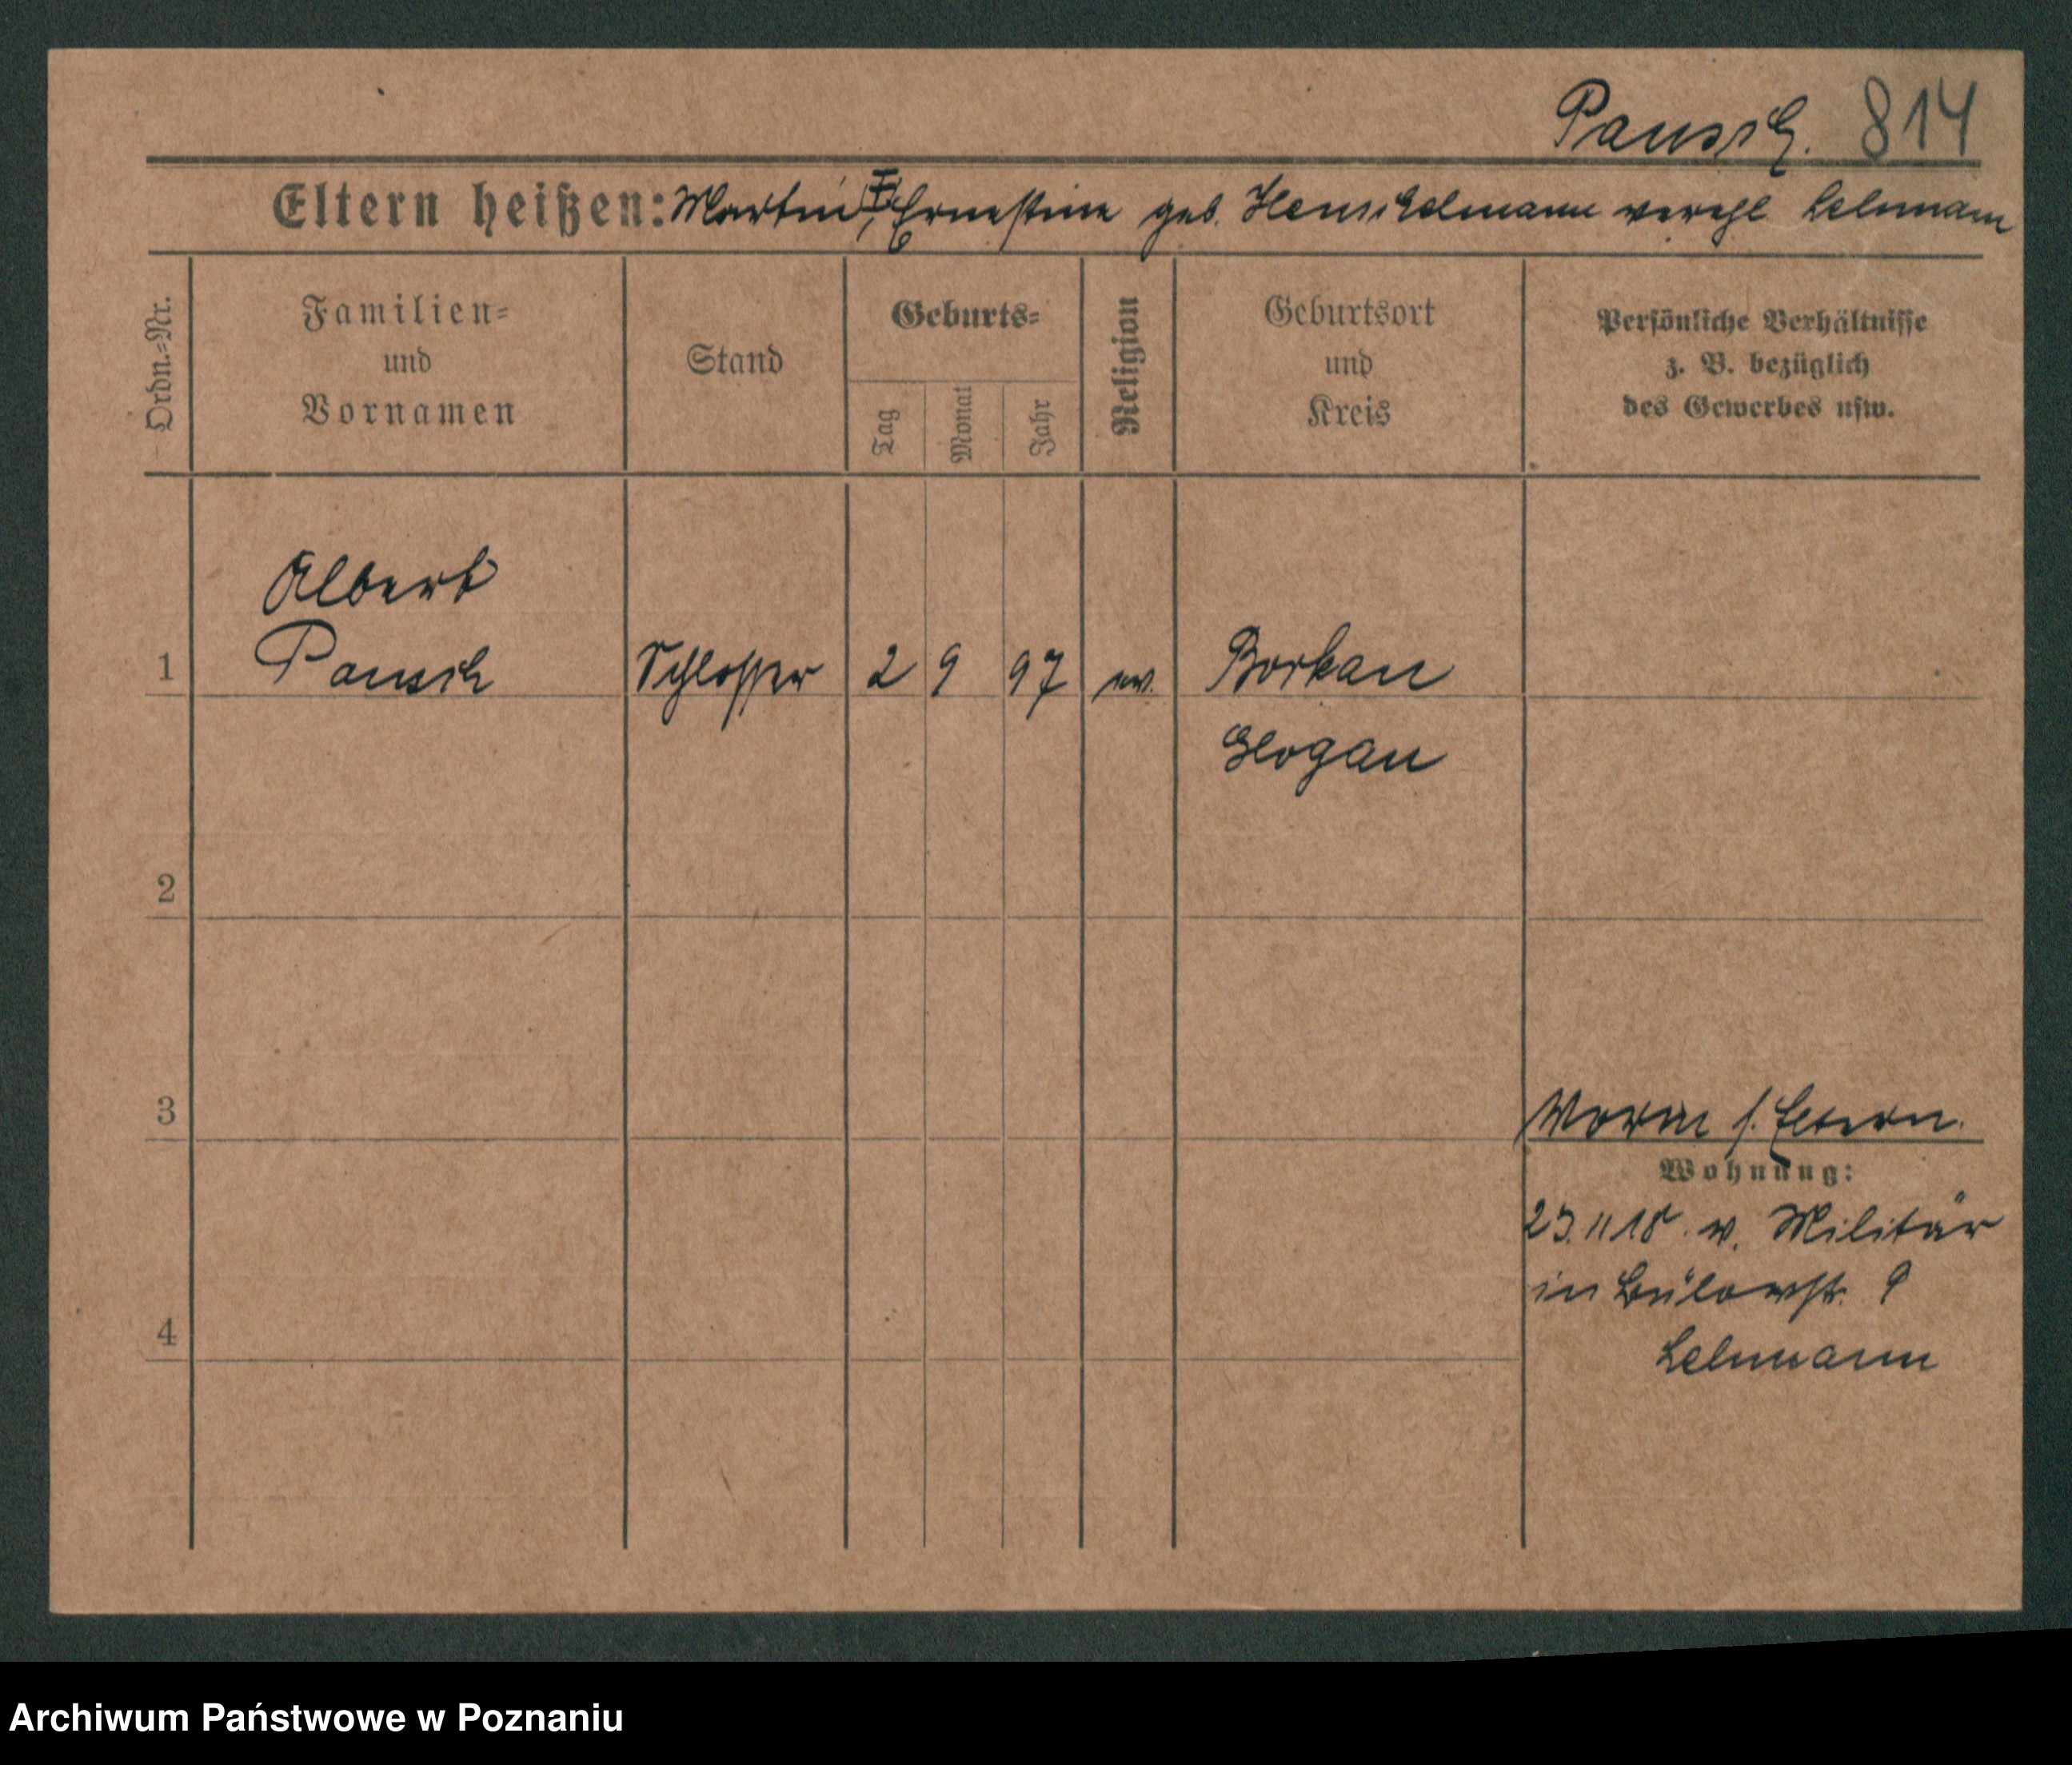 Pausch. 814
Eltern heißen: Martin, Ernestine geb. Henschelmann verehl. Lehmann
Ordn.-Nr.
Familien-
und
Vornamen
Stand
Geburts-
Tag
Monat
Jahr
Religion
Geburtsort
und
Kreis
Persönliche Verhältnisse
z. B. bezüglich
des Gewerbes usw.
Albert
1 Pausch Schlosser 2 9 97 ev. Borkau
Glogau
2
3
s. Eltern.
Wohnung:
23.11 18. v. Militär
in Bülowstr. 9
4
Lehmann
Archiwum Państwowe w Poznaniu